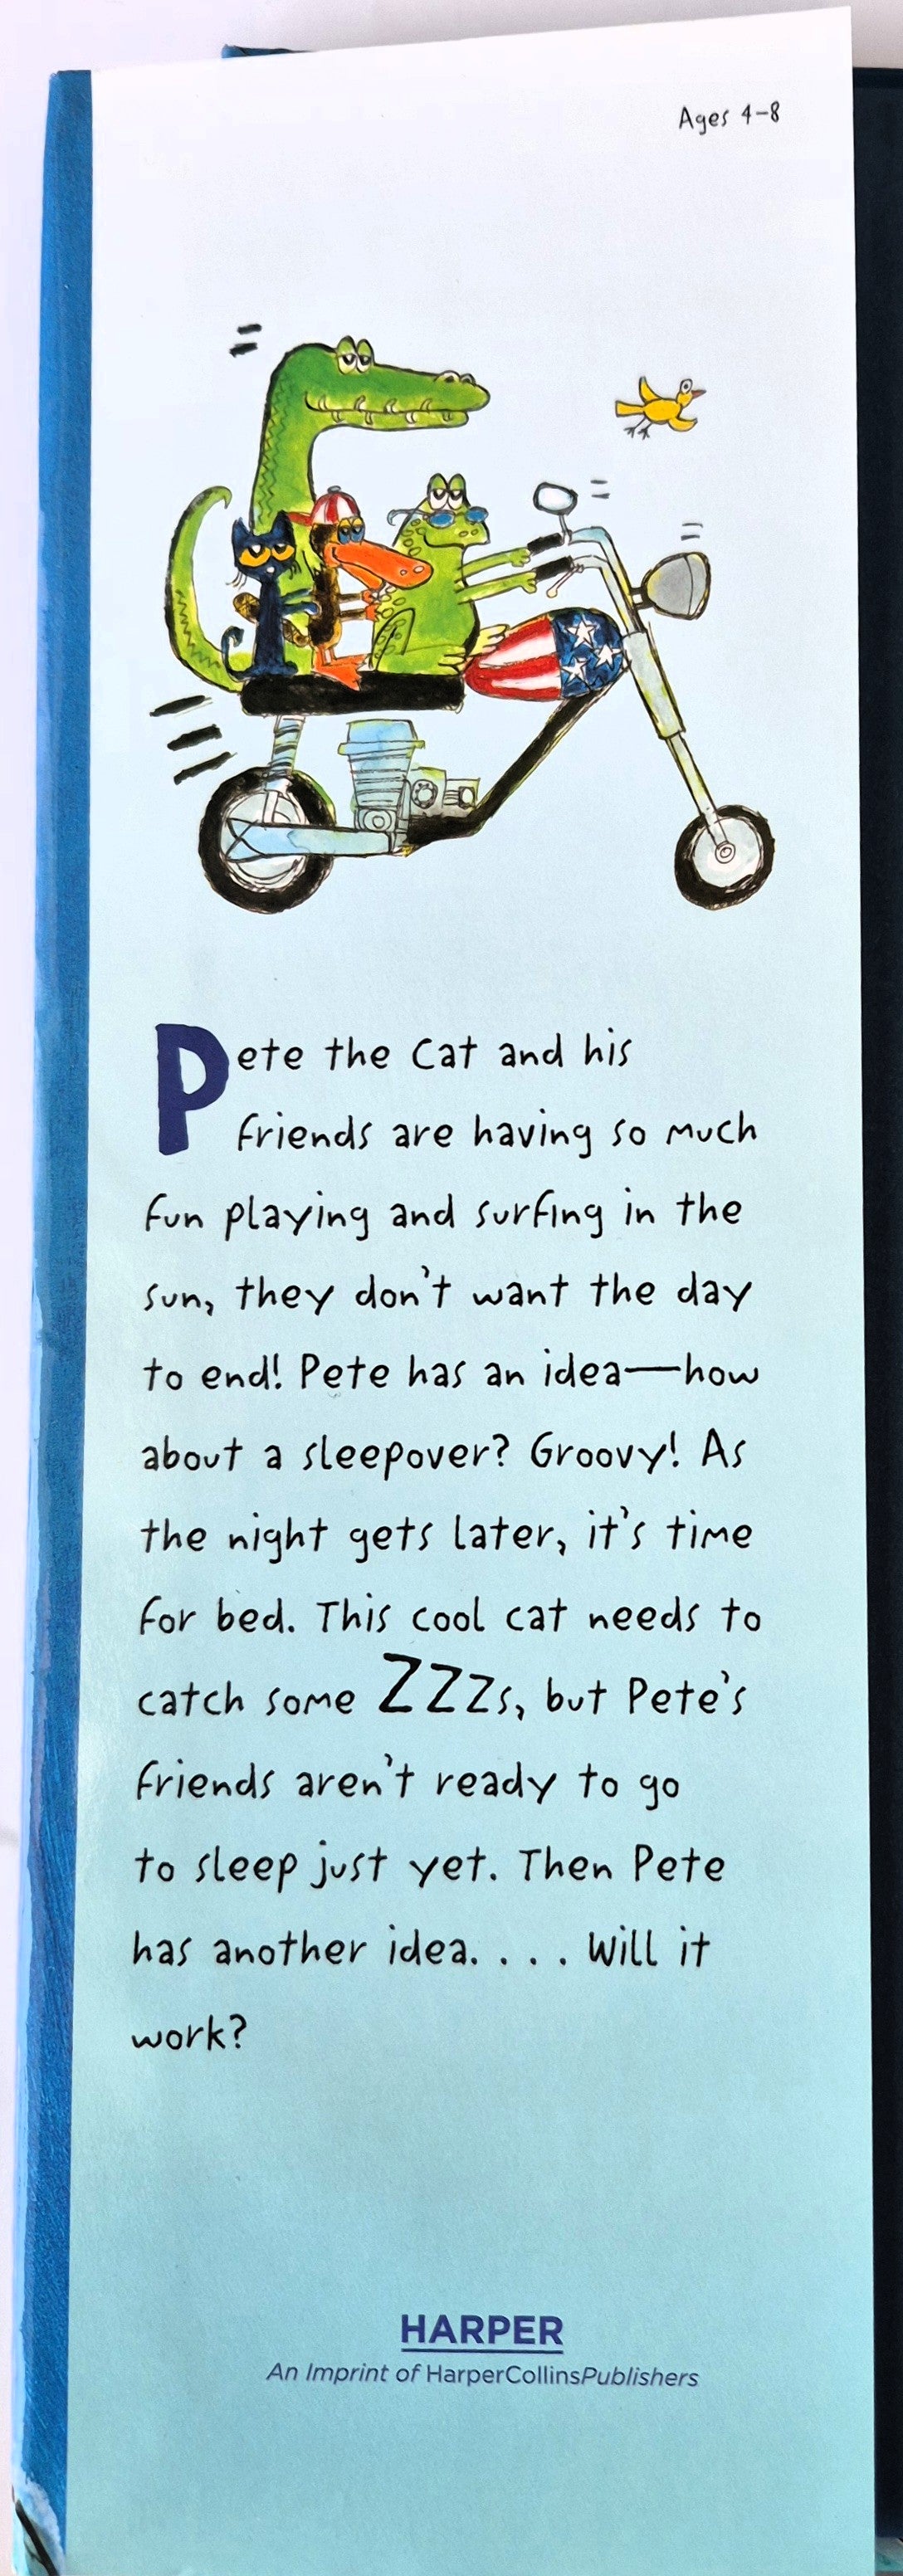 Ages 4–8
Pete the Cat and his
friends are having so much
fun playing and surfing in the
sun, they don't want the day
to end! Pete has an idea—how
about a sleepover? Groovy! As
the night gets later, it's time
for bed. This cool cat needs to
catch some ZZZs, but Pete's
friends aren't ready to go
to sleep just yet. Then Pete
has another idea. . . . Will it
work?
HARPER
An Imprint of HarperCollinsPublishers